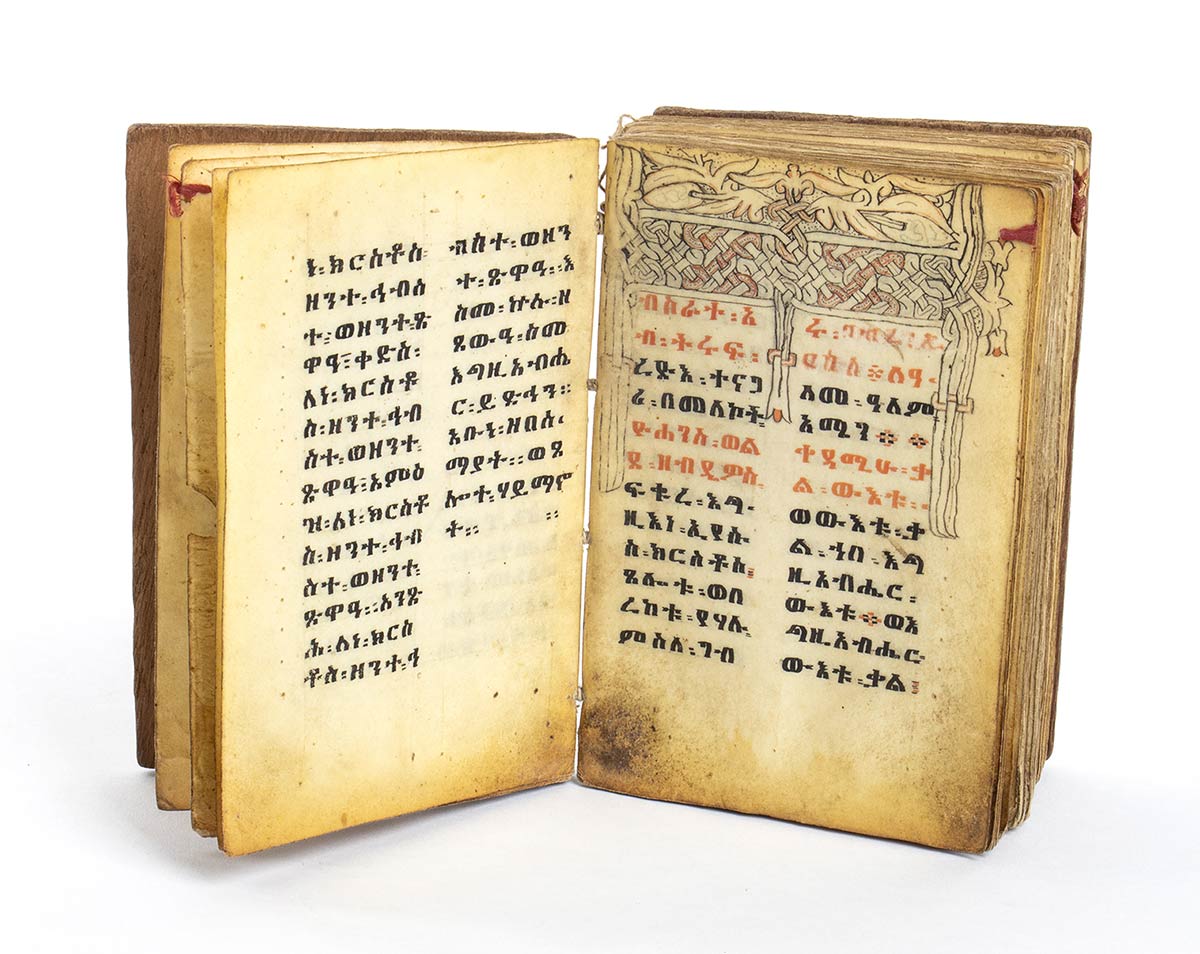 ነ፡ክርስቶስ
ዘንተ፡ኅብስ
ተ፡ወዘንተ፡ጽ
ዋዓ፡ቀድስ፡
ለነ፡ክርስቶ
ስ፡ዘንተ፡ኅብ
ስተ፡ወዘንተ፡
ጽዋዓ፡አምዕ
ዝ፡ለነ፡ክርስቶ
ስ፡ዘንተ፡ኅብ
ስተ፡ወዘንተ፡
ጽዋዓ፡አንጽ
ሕ፡ለነ፡ክርስ
ቶስ፡ዘንተ፡ኅ
ብስተ፡ወዘን
ተ፡ጽዋዓ፡እ
ስመ፡ኵሉ፡ዘ
ጸውዓ፡ስመ
እግዚአብሔ
ር፡ይድኅን፡
አቡነ፡ዘበሰ
ማያት፡ወጸ
ሎተ፡ሃይማኖ
ት።
ብስራተ፡አ
ብ፡ትሩፍ፡
ረድእ፡ተናጋ
ሪ፡በመለኮት
ዮሐንስ፡ወል
ደ፡ዘብዴዎስ
ፍቁረ፡እግ
ዚእነ፡ኢየሱ
ስ፡ክርስቶስ፡
ጸሎቱ፡ወበ
ረከቱ፡የሃሉ
ምስለ፡ገብ
ሩ፡
ለዓ
ለመ፡ዓለም
አሚን፨
ቀዳሚሁ፡ቃ
ል፡ውእቱ፡
ወውእቱ፡ቃ
ል፡ኀበ፡እግ
ዚአብሔር፡
ውእቱ፨ወእ
ግዚአብሔር
ውእቱ፡ቃል፡